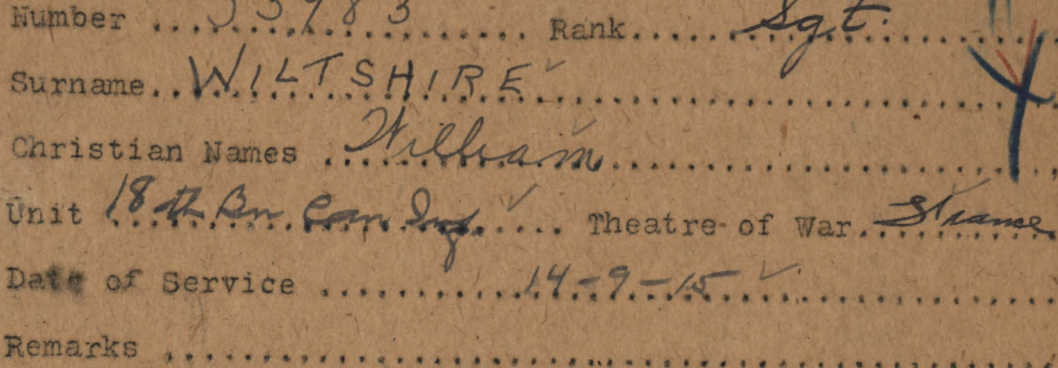 Number ... 53983 ... Rank ... Sgt.
Surname ... WILTSHIRE
Christian Names ... William
Unit 18th Bn. Can Inf. ... Theatre of War ... France
Date of Service ... 14-9-15
Remarks ...